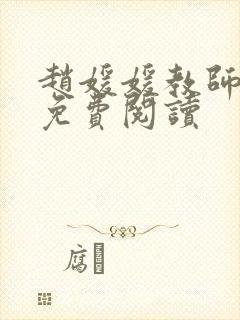 趙媛媛教師
免費閱讀
腐